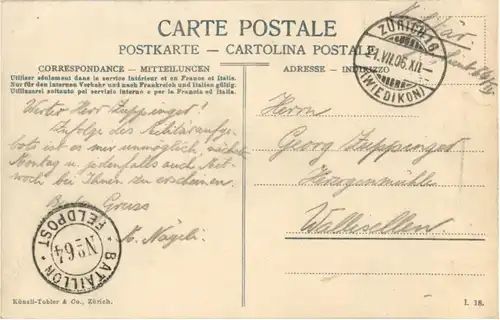 CARTE POSTALE
POSTKARTE – CARTOLINA POSTALE
CORRESPONDANCE – MITTEILUNGEN
Utiliser seulement dans le service intérieur et en France et Italie.
Nur für den internen Verkehr und nach Frankreich und Italien gültig.
Utilizzarsi soltanto pel servizio interno e per la Francia ed Italia.
ADRESSE – INDIRIZZO
Werter Herr Zuppinger!
Zufolge des Militäraufge-
bots ist es mir unmöglich, nächsten
Montag u. jedenfalls auch Mitt-
woch bei Ihnen zu erscheinen.
Gruss
K. Nägeli.
Herrn
Georg Zuppinger
Herzogenmühle
Wallisellen.
Militär
ZÜRICH 6
21.VII.06.XII
(WIEDIKON)
BATAILLON No 64
FELDPOST
Künzli-Tobler & Co., Zürich.
I. 18.